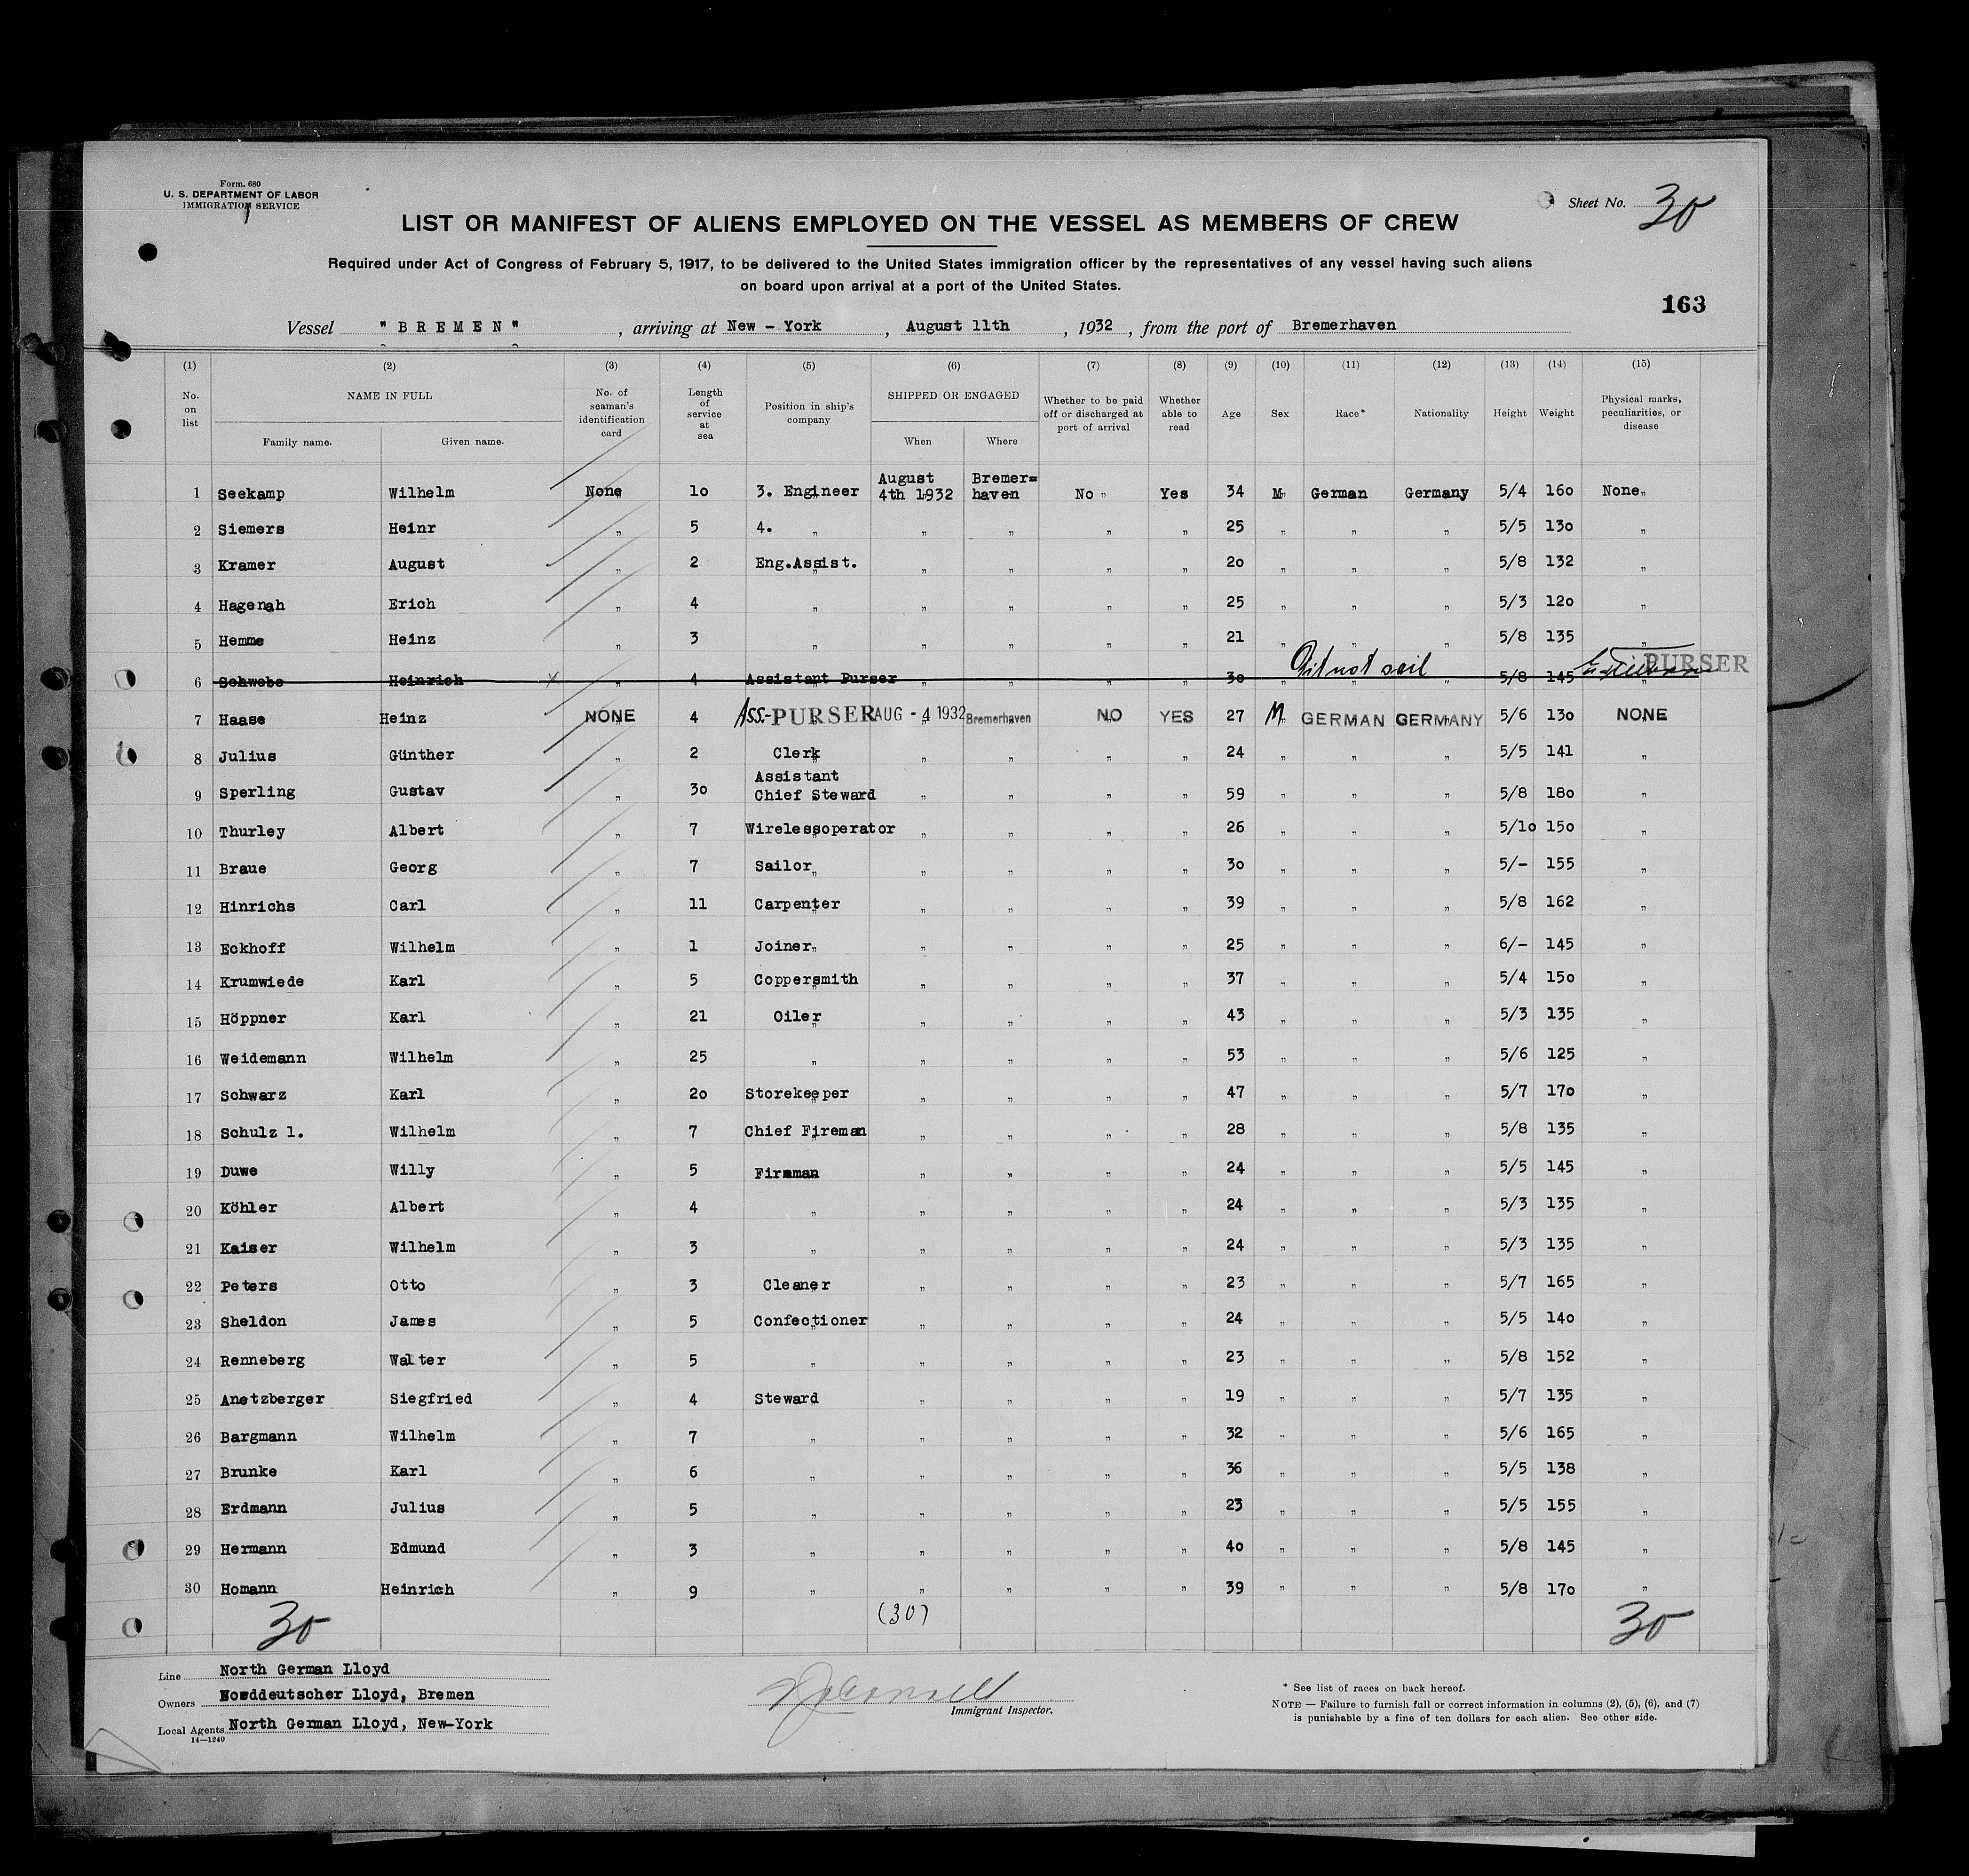 Form. 680
U. S. DEPARTMENT OF LABOR
IMMIGRATION SERVICE
Sheet No. 30
LIST OR MANIFEST OF ALIENS EMPLOYED ON THE VESSEL AS MEMBERS OF CREW
Required under Act of Congress of February 5, 1917, to be delivered to the United States immigration officer by the representatives of any vessel having such aliens
on board upon arrival at a port of the United States.
163
Vessel "BREMEN", arriving at New - York, August 11th, 1932, from the port of Bremerhaven
(1) (2) (3) (4) (5) (6) (7) (8) (9) (10) (11) (12) (13) (14) (15)
No. on list NAME IN FULL Family name. Given name. No. of seaman's identification card Length of service at sea Position in ship's company SHIPPED OR ENGAGED When Where Whether to be paid off or discharged at port of arrival Whether able to read Age Sex Race* Nationality Height Weight Physical marks, peculiarities, or disease
1 Seekamp Wilhelm None 1o 3. Engineer August 4th 1932 Bremer= haven No Yes 34 M German Germany 5/4 16o None
2 Siemers Heinr " 5 4. " " " " " 25 " " " 5/5 13o "
3 Kramer August " 2 Eng.Assist. " " " " 2o " " " 5/8 132 "
4 Hagenah Erich " 4 " " " " " 25 " " " 5/3 12o "
5 Hemme Heinz " 3 " " " " " 21 " " " 5/8 135 "
6 Schwebe Heinrich " 4 Assistant Purser " " " " 3o " Did not sail " 5/8 145 PURSER
7 Haase Heinz NONE 4 Ass.-PURSER AUG - 4 1932 Bremerhaven NO YES 27 M GERMAN GERMANY 5/6 13o NONE
8 Julius Günther " 2 Clerk " " " " 24 " " " 5/5 141 "
9 Sperling Gustav " 3o Assistant Chief Steward " " " " 59 " " " 5/8 18o "
10 Thurley Albert " 7 Wirelessoperator " " " " 26 " " " 5/1o 15o "
11 Braue Georg " 7 Sailor " " " " 3o " " " 5/- 155 "
12 Hinrichs Carl " 11 Carpenter " " " " 39 " " " 5/8 162 "
13 Eckhoff Wilhelm " 1 Joiner " " " " 25 " " " 6/- 145 "
14 Krumwiede Karl " 5 Coppersmith " " " " 37 " " " 5/4 15o "
15 Höppner Karl " 21 Oiler " " " " 43 " " " 5/3 135 "
16 Weidemann Wilhelm " 25 " " " " " 53 " " " 5/6 125 "
17 Schwarz Karl " 2o Storekeeper " " " " 47 " " " 5/7 17o "
18 Schulz 1. Wilhelm " 7 Chief Fireman " " " " 28 " " " 5/8 135 "
19 Duwe Willy " 5 Fireman " " " " 24 " " " 5/5 145 "
20 Köhler Albert " 4 " " " " " 24 " " " 5/3 135 "
21 Kaiser Wilhelm " 3 " " " " " 24 " " " 5/3 135 "
22 Peters Otto " 3 Cleaner " " " " 23 " " " 5/7 165 "
23 Sheldon James " 5 Confectioner " " " " 24 " " " 5/5 14o "
24 Renneberg Walter " 5 " " " " " 23 " " " 5/8 152 "
25 Anetzberger Siegfried " 4 Steward " " " " 19 " " " 5/7 135 "
26 Bargmann Wilhelm " 7 " " " " " 32 " " " 5/6 165 "
27 Brunke Karl " 6 " " " " " 36 " " " 5/5 138 "
28 Erdmann Julius " 5 " " " " " 23 " " " 5/5 155 "
29 Hermann Edmund " 3 " " " " " 4o " " " 5/8 145 "
30 Homann Heinrich " 9 " " " " " 39 " " " 5/8 17o "
30 (30) 30
Line North German Lloyd
Owners Norddeutscher Lloyd, Bremen
Local Agents North German Lloyd, New-York
14—1240
Immigrant Inspector.
* See list of races on back hereof.
NOTE — Failure to furnish full or correct information in columns (2), (5), (6), and (7)
is punishable by a fine of ten dollars for each alien. See other side.